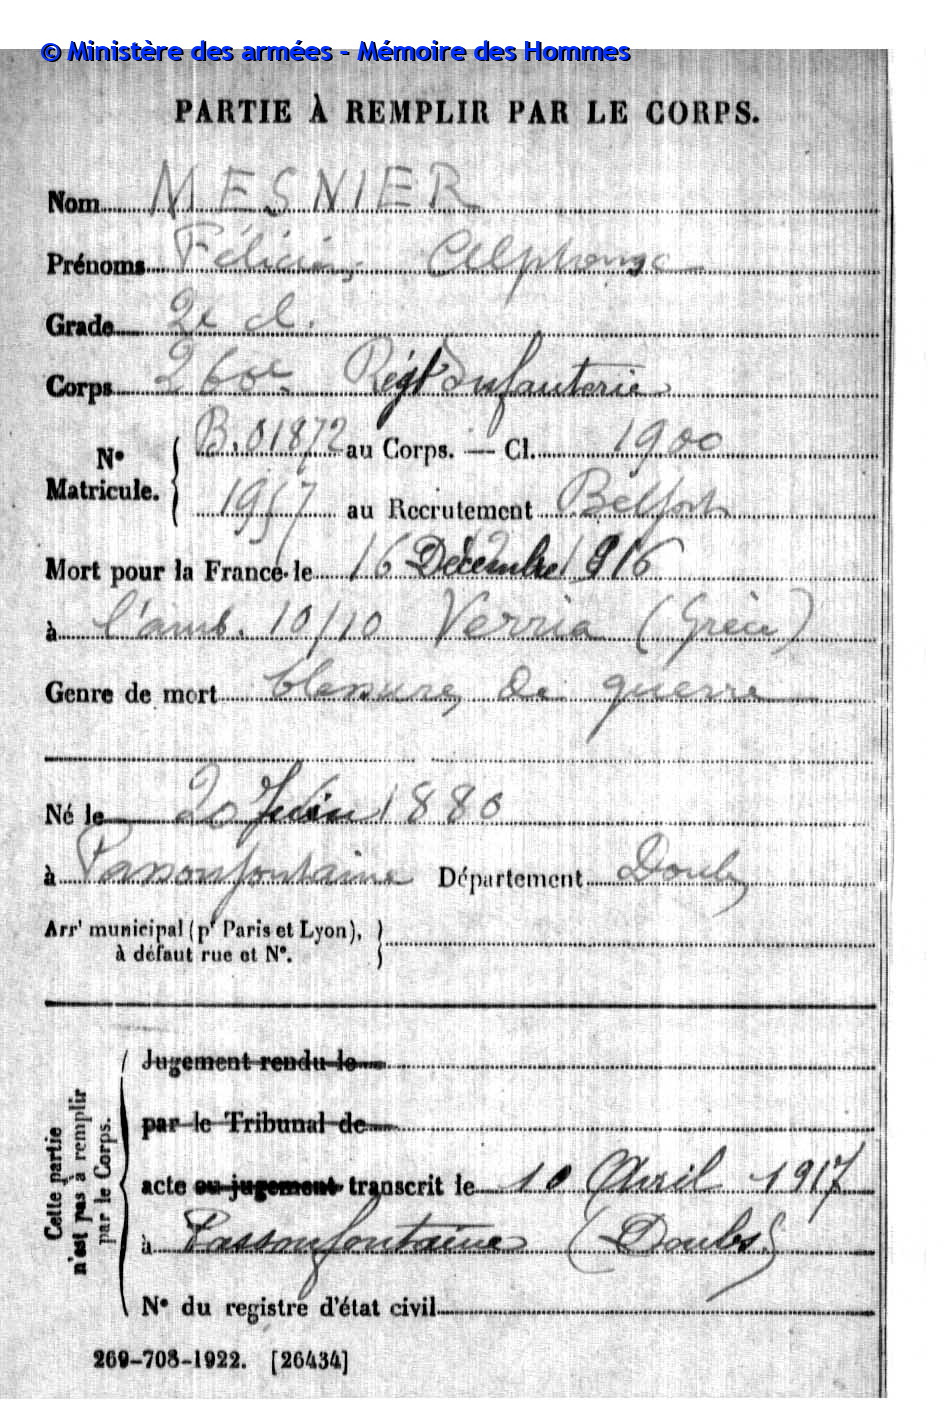 © Ministère des armées - Mémoire des Hommes
PARTIE À REMPLIR PAR LE CORPS.
Nom MESNIER
Prénoms Félicien, Alphonse
Grade 2e cl.
Corps 260e Régt d'Infanterie
N° Matricule. B.01872 au Corps. — Cl. 1900
1957 au Recrutement Belfort
Mort pour la France le 16 Décembre 1916
à l'amb. 10/10 Verria (Grèce)
Genre de mort blessures de guerre
Né le 20 Juin 1880
à Passonfontaine Département Doubs
Arrt municipal (pr Paris et Lyon),
à défaut rue et N°.
Cette partie
n'est pas à remplir
par le Corps.
Jugement rendu le
par le Tribunal de
acte ou jugement transcrit le 10 Avril 1917
à Passonfontaine (Doubs)
N° du registre d'état civil
269-708-1922. [26434]